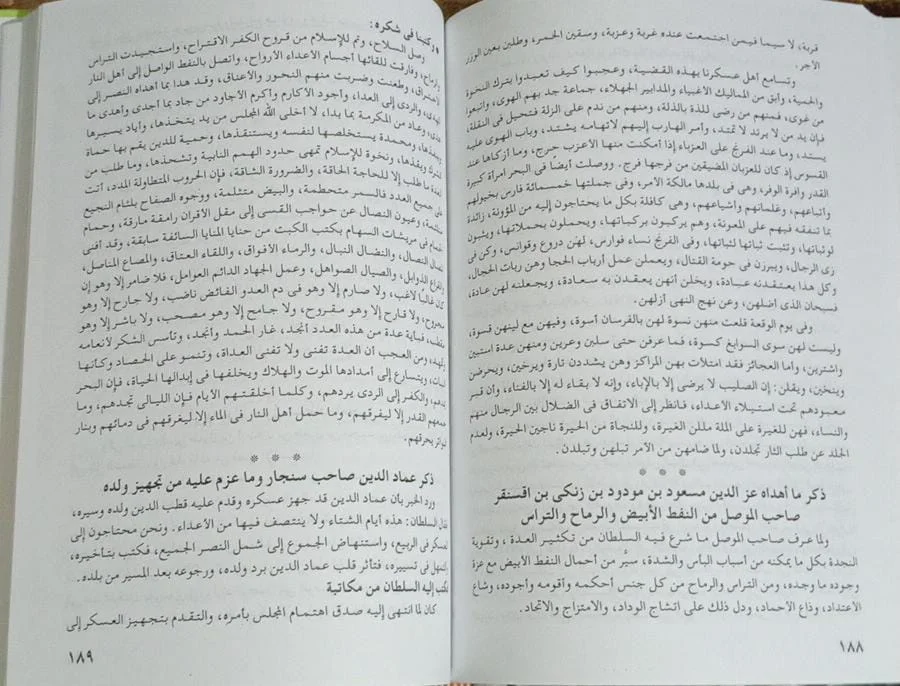 قربة، لا سيما فيمن اجتمعت عنده غربة وعزبة، وسقين الخمر، وطلبن بعين الوزر
الأجر.
وتسامع أهل عسكرنا بهذه القضية، وعجبوا كيف تعبدوا بترك النخوة
والحمية، وأبق من المماليك الأغبياء والمدابير الجهلاء، جماعة جد بهم الهوى، واتبعوا
من غوى، فمنهم من رضى للذة بالذلة، ومنهم من ندم على الزلة فتحيل فى النقلة،
فإن يد من لا يرتد لا تمتد، وأمر الهارب إليهم لاتهامه يشتد، وباب الهوى عليه
يستد، وما عند الفرنج على العزباء إذا أمكنت منها الأعزب حرج، وما أزكاها عند
القسوس إذ كان للعزبان المضيقين من فرجها فرج. ووصلت أيضًا فى البحر امرأة كبيرة
القدر وافرة الوفر، وهى فى بلدها مالكة الأمر، وفى جملتها خمسمائة فارس بخيولهم
وأتباعهم، وغلمانهم وأشياعهم، وهى كافلة بكل ما يحتاجون إليه من المؤونة، زائدة
بما تنفقه فيهم على المعونة، وهم يركبون بركباتها، ويحملون بحملاتها، ويثبون
لوثباتها، وتثبت ثباتها لثباتها، وفى الفرنج نساء فوارس، لهن دروع وقوانس، وكن فى
زى الرجال، ويبرزن فى حومة القتال، ويعملن عمل أرباب الحجا وهن ربات الحجال،
وكل هذا يعتقدنه عبادة، ويخلن أنهن يعقدن به سعادة، ويجعلنه لهن عادة،
فسبحان الذى أضلهن، وعن نهج النهى أزلهن.
وفى يوم الوقعة قلعت منهن نسوة لهن بالفرسان أسوة، وفيهن مع لينهن قسوة،
وليست لهن سوى السوابغ كسوة، فما عرفن حتى سلبن وعرين ومنهن عدة استبين
واشترين، وأما العجائز فقد امتلات بهن المراكز وهن يشددن تارة ويرخين، ويحرضن
وينخين، ويقلن: إن الصليب لا يرضى إلا بالإباء، وإنه لا بقاء له إلا بالفناء، وأن قبر
معبودهم تحت استيلاء الأعداء، فانظر إلى الاتفاق فى الضلال بين الرجال منهم
والنساء، فهن للغيرة على الملة مللن الغيرة، وللنجاة من الحيرة ناجين الحيرة، ولعدم
الجلد عن طلب الثار تجلدن، ولما ضامهن من الأمر تبلهن وتبلدن.
* * *
ذكر ما أهداه عز الدين مسعود بن مودود بن زنكى بن اقسنقر
صاحب الموصل من النفط الأبيض والرماح والتراس
ولما عرف صاحب الموصل ما شرع فيه السلطان من تكثير العدة، وتقوية
النجدة بكل ما يمكنه من أسباب البأس والشدة، سيّر من أحمال النفط الأبيض مع عزة
وجوده ما وجده، ومن التراس والرماح من كل جنس أحكمه وأقومه وأجوده، وشاع
الاعتداد، وذاع الاحماد، ودل ذلك على اتشاج الوداد، والامتزاج والاتحاد.
١٨٨
وكتبنا فى شكره:
وصل السلاح، وتم للإسلام من قروح الكفر الاقتراح، واستجيدت التراس
والرماح، وفارقت للقائها أجسام الأعداء الأرواح، واتصل بالنفط الواصل إلى أهل النار
الاحتراق، وطعنت وضربت منهم النحور والأعناق، وقد هدا بما أهداه النصر إلى
الهدى، والردى إلى العدا، وأجود الأكارم وأكرم الأجاود من جاد بما أجدى وأهدى ما
هدى، وعاد من المكرمة بما بدا، لا أخلى الله المجلس من يد يتخذها، وأياد يسيرها
وينفذها، ومحمدة يستخلصها لنفسه ويستنقذها، وحمية للدين يقم بها حماة
الشرك ويقذها، ونخوة للإسلام تمهى حدود الهمم النابية وتشحذها، وما طلب من
العدة ما طلب إلا للحاجة الحاقة، والضرورة الشاقة، فإن الحروب المتطاولة المدد، أتت
على جميع العدد فالسمر متحطمة، والبيض متثلمة، ووجوه الصفاح بلثام النجيع
متلثمة، وعيون النصال عن حواجب القسى إلى مقل الأقران رامقة مارقة، وحمام
الحمام فى مريشات السهام بكتب الكبت من حنايا المنايا السائفة سابقة، وقد أفنى
القتال النصال، والنضال النبال، والرماء الأفواق، واللقاء العتاق، والمصاع المناصل،
والقراع الذوابل، والصيال الصواهل، وعمل الجهاد الدائم العوامل، فلا ضامر إلا وهو إن
كان غالبًا لاغب، ولا صارم إلا وهو فى دم العدو الفائض ناضب، ولا جارح إلا وهو
مجروح، ولا قارح إلا وهو مقروح، ولا جامح إلا وهو مصحب، ولا باشر إلا وهو
مقطب، فبأية عدة من هذه العدد أنجد، غار الحمد وأنجد، وتأسس الشكر لأنعامه
وتمهد، ومن العجب أن العدة تفنى ولا تفنى العداة، وتنمو على الحصاد وكأنها
النبات، ويتسارع إلى أمدادها الموت والهلاك ويخلفها فى إبدالها الحياة، فإن البحر
يمدهم، والكفر إلى الردى يردهم، وكلما أخلقتهم الأيام فإن الليالى تجدهم، وما
جمعهم القدر إلا ليفرقهم، وما حمل أهل النار فى الماء إلا ليغرقهم فى دمائهم وبنار
البواتر يحرقهم.
* * *
ذكر عماد الدين صاحب سنجار وما عزم عليه من تجهيز ولده
ورد الخبر بأن عماد الدين قد جهز عسكره وقدم عليه قطب الدين ولده وسيره،
فقال السلطان: هذه أيام الشتاء ولا ينتصف فيها من الأعداء. ونحن محتاجون إلى
العسكر فى الربيع، واستنهاض الجموع إلى شمل النصر الجميع، فكتب بتأخيره،
التمهل فى تسييره، فتأثر قلب عماد الدين برد ولده، ورجوعه بعد المسير من بلده.
فكتب إليه السلطان من مكاتبة
كان لما انتهى إليه صدق اهتمام المجلس بأمره، والتقدم بتجهيز العسكر إلى
١٨٩